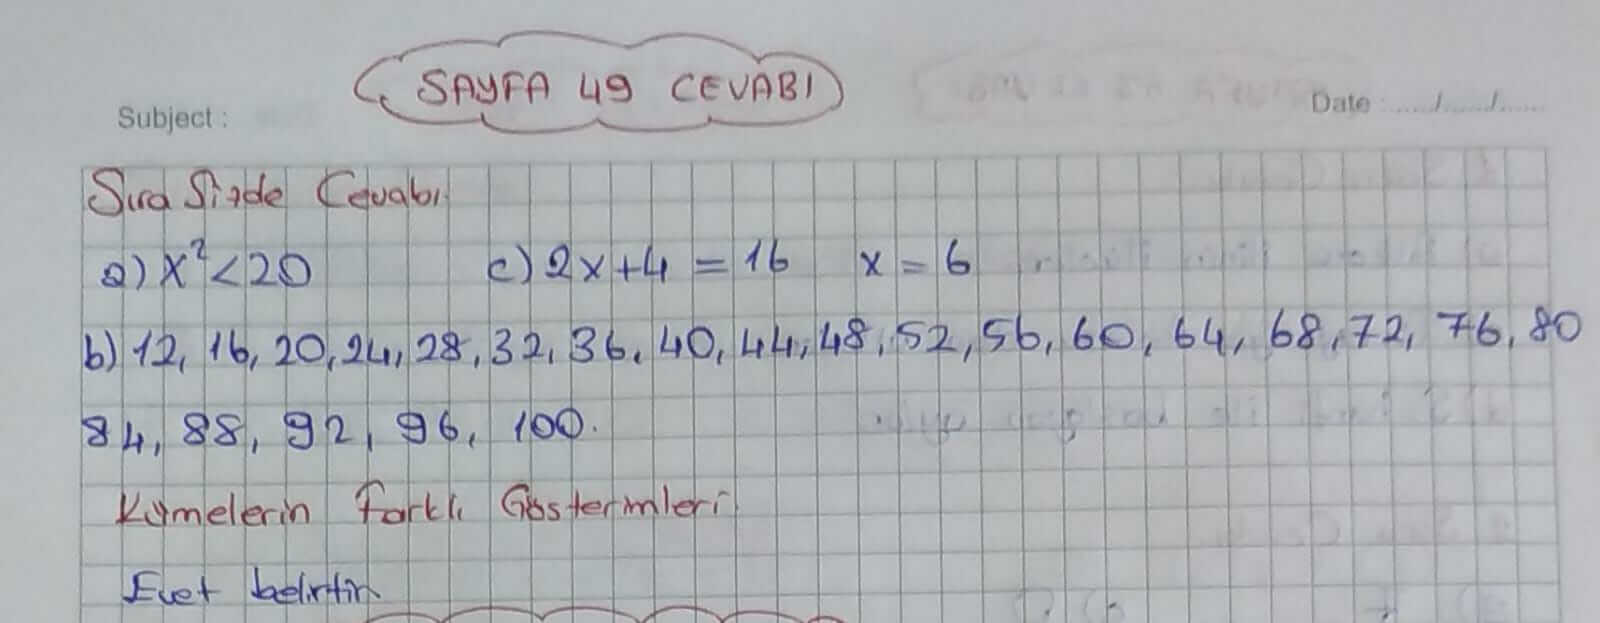 SAYFA 49 CEVABI
Subject :
Date : ....../....../......
Sıra Sizde Cevabı
a) x² < 20 c) 2x+4 = 16 x = 6
b) 12, 16, 20, 24, 28, 32, 36, 40, 44, 48, 52, 56, 60, 64, 68, 72, 76, 80
84, 88, 92, 96, 100.
Kümelerin Farklı Gösterimleri
Evet belirtir